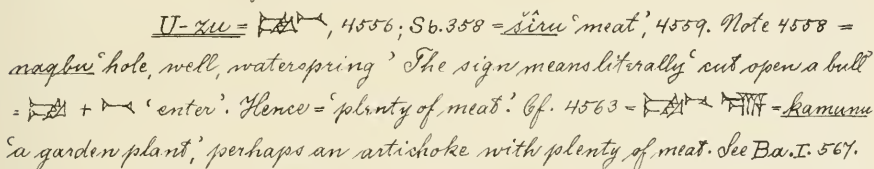 U-zu = 𒍜, 4556; Sb. 358 = šîru 'meat', 4559. Note 4558 =
naqbu 'hole, well, waterspring' The sign means literally 'cut open a bull'
= + 'enter'. Hence = 'plenty of meat'. Cf. 4563 = = kamunu
'a garden plant,' perhaps an artichoke with plenty of meat. See Ba. I. 567.